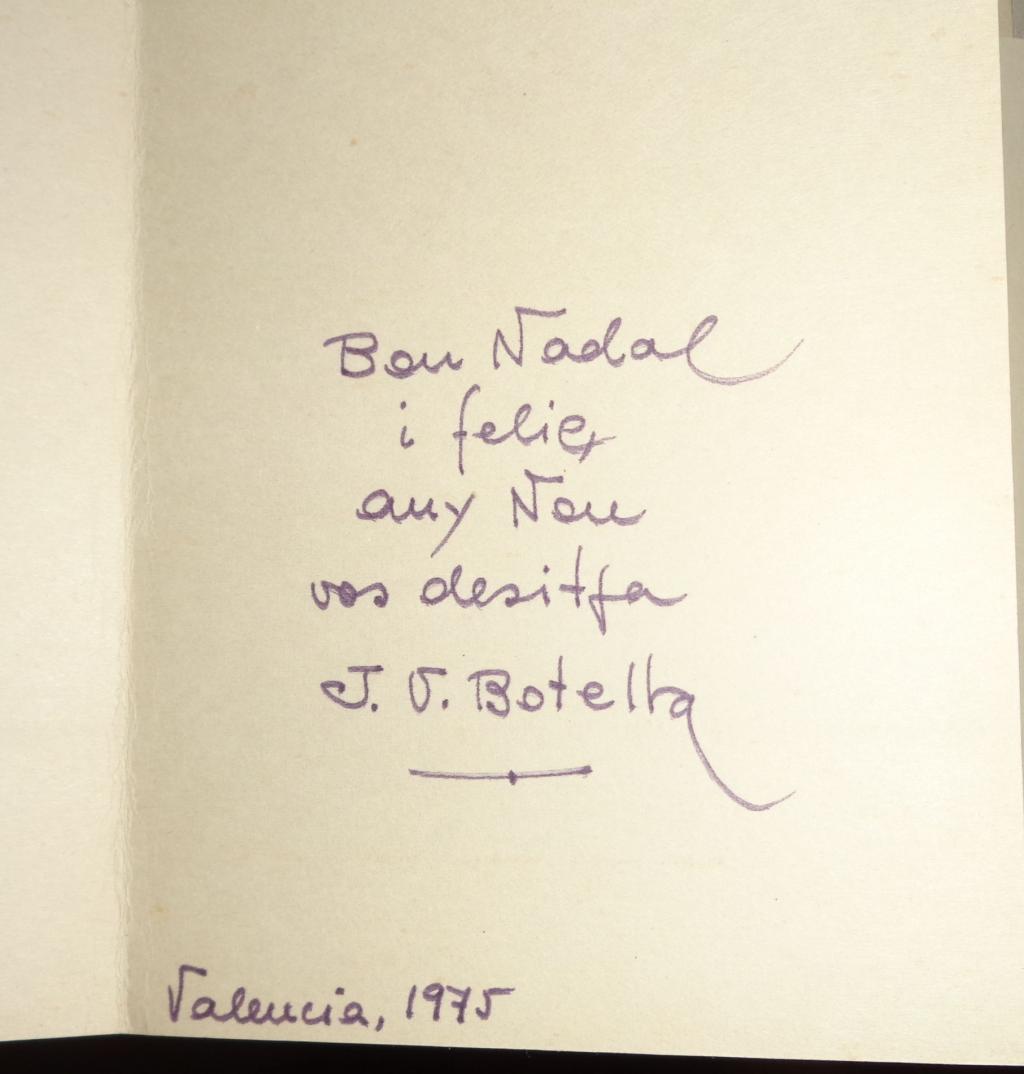 Bon Nadal
i feliç
any Nou
vos desitja
J. V. Botella
Valencia, 1975